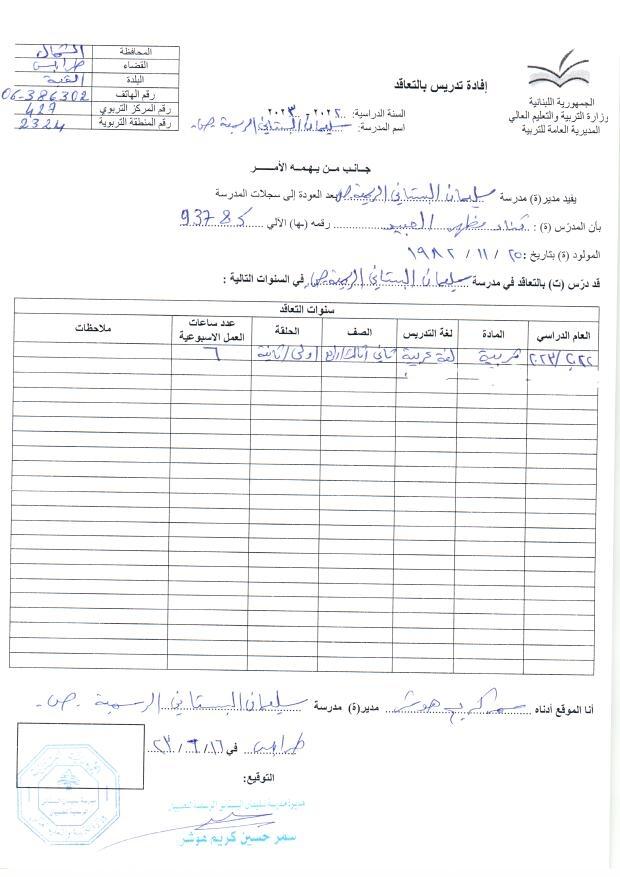 الجمهورية اللبنانية
وزارة التربية والتعليم العالي
المديرية العامة للتربية
إفادة تدريس بالتعاقد
السنة الدراسية: ٢٠٢٢ - ٢٠٢٣
اسم المدرسة: سليمان البستاني الرسمية ص.
المحافظة الشمال
القضاء طرابلس
البلدة القبة
رقم الهاتف 06-386302
رقم المركز التربوي 427
رقم المنطقة التربوية 2324
جانب من يهمه الأمر
يفيد مدير(ة) مدرسة سليمان البستاني الرسمية ص بعد العودة إلى سجلات المدرسة
بأن المدرّس (ة) : العبيد رقمه (ـها) الآلي 93785
المولود (ة) بتاريخ: ٢٥ / ١١ / ١٩٨٢
قد درّس (ت) بالتعاقد في مدرسة سليمان البستاني الرسمية ص في السنوات التالية :
سنوات التعاقد
العام الدراسي المادة لغة التدريس الصف الحلقة عدد ساعات العمل الاسبوعية ملاحظات
٢٠٢٢/٢٠٢٣ عربية لغة عربية ثاني/ثالث/رابع اولى/ثانية ٦
أنا الموقع أدناه سمر كريم هوشر مدير(ة) مدرسة سليمان البستاني الرسمية ص.
طرابلس في ١٦/٢٣
التوقيع:
مديرة مدرسة سليمان البستاني الرسمية للصبيان
سمر حسين كريم هوشر